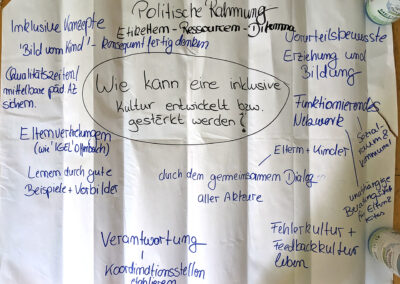 Politische Rahmung
Etiketten-Ressourcen-Dilemma
Inklusive Konzepte
"Bild vom Kind" - konsequent fertig denken
Qualitätszeiten/
mittelbare päd. AZ
sichern.
Elternvertretungen
(wie "KGEL" Offenbach)
Lernen durch gute
Beispiele + Vorbilder
Wie kann eine inklusive
Kultur entwickelt bzw.
gestärkt werden?
Vorurteilsbewusste
Erziehung und
Bildung
Funktionierendes
Netzwerk
Sozial-
raum &
Kommune!
unabhängige
für Eltern &
Kitas
Eltern + Kinder
durch den gemeinsamen Dialog
aller Akteure
Verantwortung
Koordinationsstellen
etablieren
Fehlerkultur +
Feedbackkultur
leben